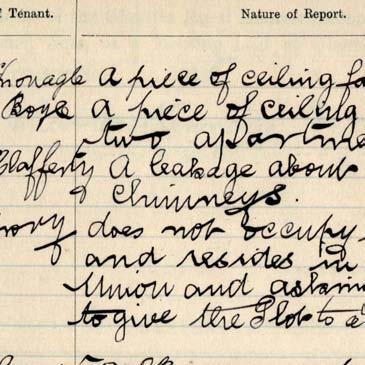 f Tenant. Nature of Report.
A piece of ceiling fa
Boyle a piece of ceiling
two apartme
Clafferty A leakage about
Chimneys.
does not occupy
and resides in
Union and askin
to give the Plot to a